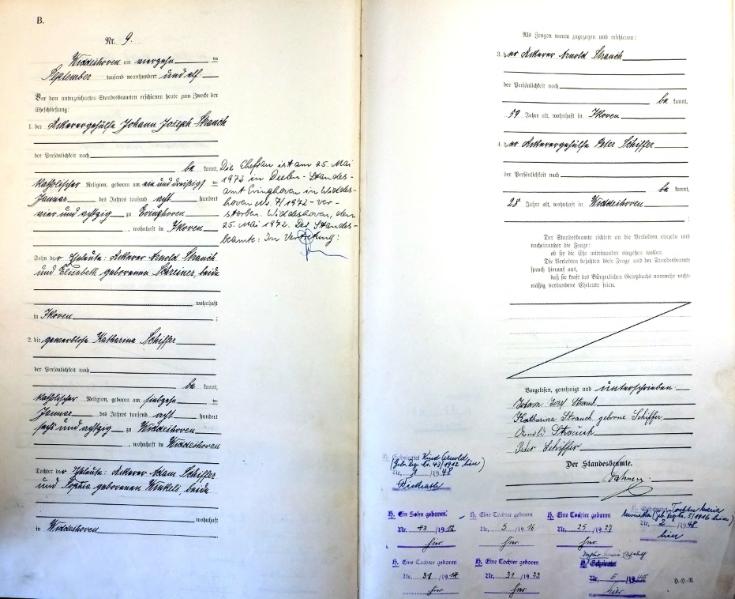 B.
Nr. 9.
Widdeshoven am vierzehn ten
September tausend neunhundert und elf
Vor dem unterzeichneten Standesbeamten erschienen heute zum Zwecke der
Eheschließung:
1. der Ackerergehülfe Johann Joseph Strauch
der Persönlichkeit nach
be kannt,
katholischer Religion, geboren am ein und dreißig ten
Januar des Jahres tausend acht hundert
vier und achtzig zu
, wohnhaft in Ikoven
Sohn der Eheleute: Ackerer Arnold Strauch
und Elisabeth geborenen beide
wohnhaft
in Ikoven ;
2. die gewerblose Katharina Schiffer
der Persönlichkeit nach
be kannt,
katholischer Religion, geboren am siebzehn
Januar des Jahres tausend acht hundert
sechs und achtzig zu Widdeshoven
, wohnhaft in Widdeshoven
Tochter der Eheleute: Ackerer Adam Schiffer
und Sophia geborenen Winkels, beide
wohnhaft
in Widdeshoven
Die Ehefrau ist am 25. Mai
1972 in Standes-
amt Evinghoven in Widdes-
hoven Nr. 7/1972 ver-
storben. Widdeshoven, den
25. Mai 1972. Der Standes-
beamte: In Vertretung:
Als Zeugen waren zugezogen und erschienen:
3. der Ackerer Arnold Strauch
der Persönlichkeit nach
be kannt,
59 Jahre alt, wohnhaft in Ikoven
4. der Ackerergehülfe Peter Schiffer
der Persönlichkeit nach
be kannt,
28 Jahre alt, wohnhaft in Widdeshoven
Der Standesbeamte richtete an die Verlobten einzeln und
nacheinander die Frage:
ob sie die Ehe miteinander eingehen wollen.
Die Verlobten bejahten diese Frage und der Standesbeamte
sprach hierauf aus,
daß sie kraft des Bürgerlichen Gesetzbuchs nunmehr recht-
mäßig verbundene Eheleute seien.
Vorgelesen, genehmigt und unterschrieben
Johann Josef Strauch
Katharina Strauch geborne Schiffer
Arnold Strauch
Peter Schiffer
Der Standesbeamte.
H. Ein Sohn geboren:
Nr. 43 /19 12
hier
H. Eine Tochter geboren
Nr. 5 /19 16
hier
H. Eine Tochter geboren
Nr. 25 /19 27
hier
H. Eine Tochter geboren
Nr. 31
hier
H. Eine Tochter geboren
Nr. 31 /19 22
hier
hier